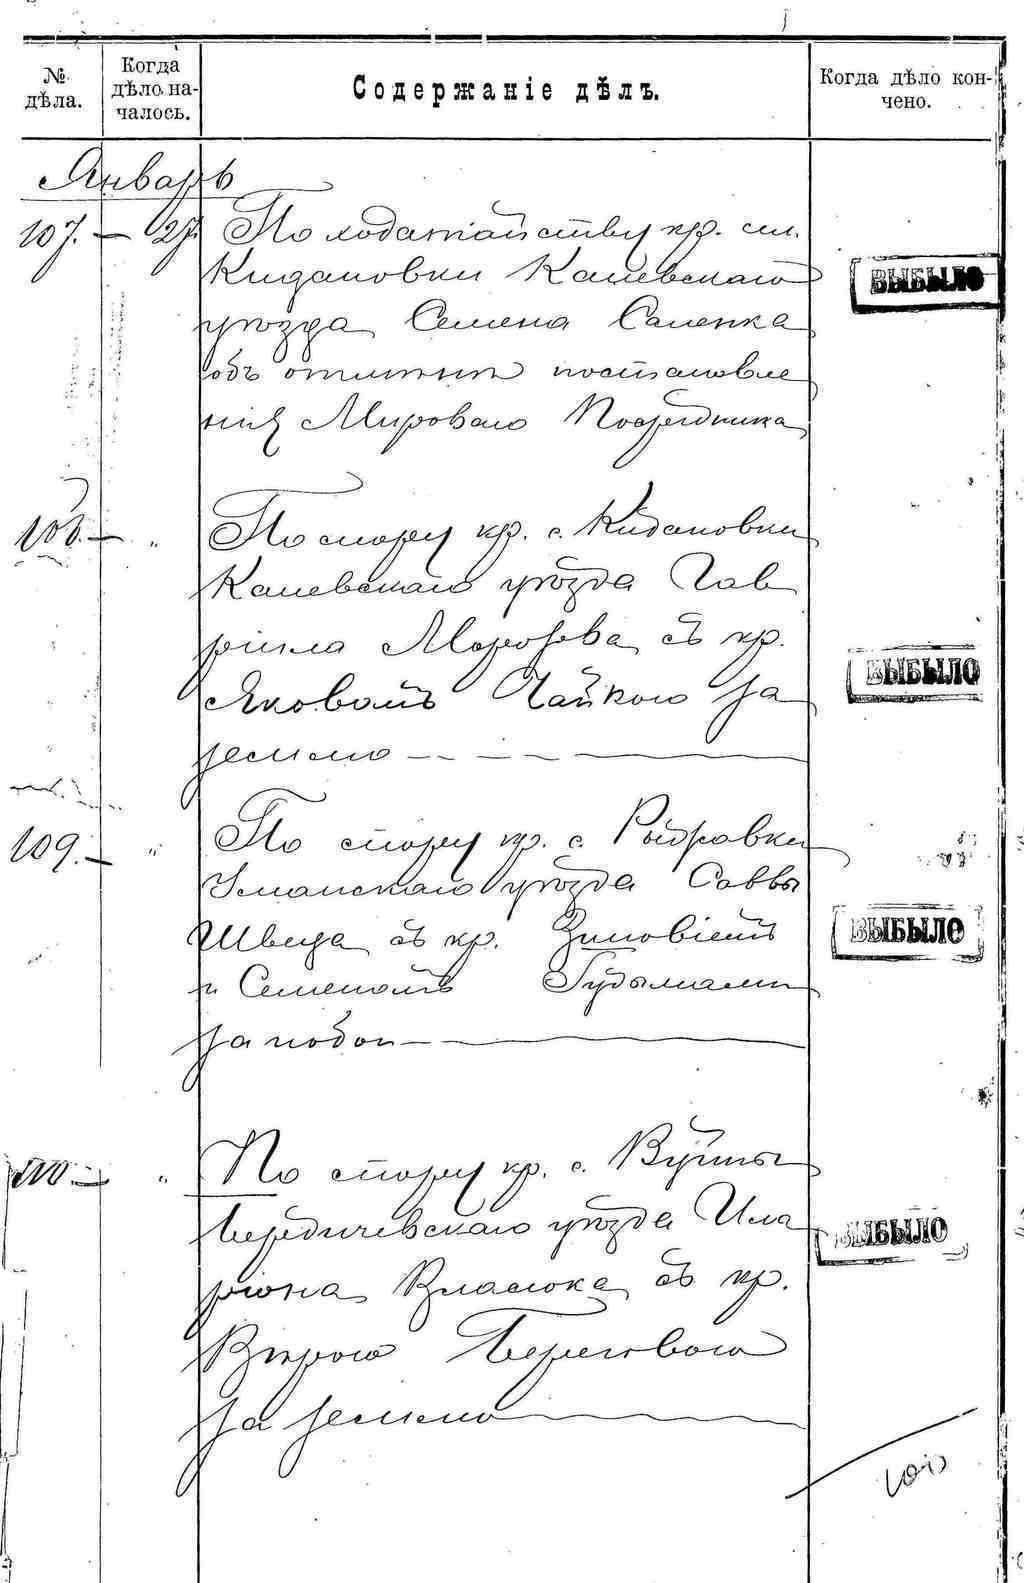 № дѣла.
Когда дѣло началось.
Содержаніе дѣлъ.
Когда дѣло кончено.
Январь
107. — 27. По ходатайству кр. сл.
Кидановки Каневскаго
уѣзда Семена Саленка
объ отмѣнѣ постановле
нія Мироваго Посредника
ВЫБЫЛО
108. — " По спору кр. с. Кидановки
Каневскаго уѣзда Гав
ріила Морозова съ кр.
Яковомъ Чайкою за
землю
ВЫБЫЛО
109. — " По спору кр. с.
Уманскаго уѣзда Саввы
Швеца съ кр. Зиновіемъ
и Семеномъ Гудымами
за побои
ВЫБЫЛО
110. — " По спору кр. с. Вуйны
Бердичевскаго уѣзда Ила
ріона Власюка съ кр.
Вѣрою
за землю
ВЫБЫЛО